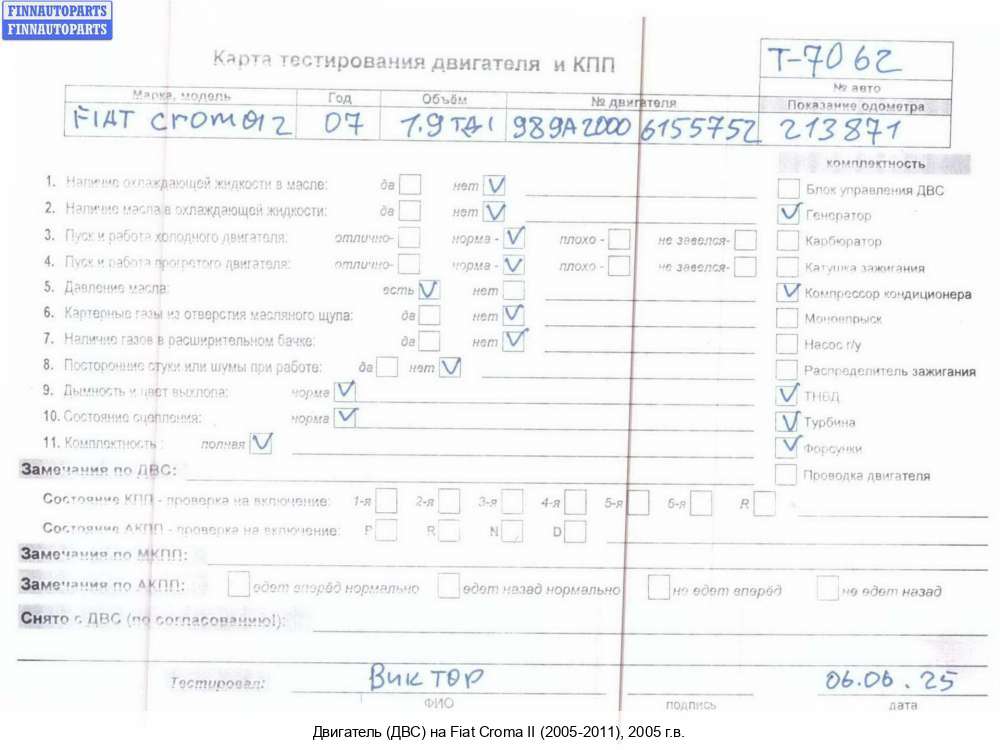 FINNAUTOPARTS
FINNAUTOPARTS
Карта тестирования двигателя и КПП
T-7062
№ авто
Марка, модель Год Объём № двигателя Показание одометра
07 1.9 TDI 989A2000 6155752 213871
комплектность
1. Наличие охлаждающей жидкости в масле: да нет V
Блок управления ДВС
2. Наличие масла в охлаждающей жидкости: да нет V
V Генератор
3. Пуск и работа холодного двигателя: отлично- норма - V плохо - не завелся-
Карбюратор
4. Пуск и работа прогретого двигателя: отлично- норма - V плохо - не завелся-
Катушка зажигания
5. Давление масла: есть V нет
V Компрессор кондиционера
6. Картерные газы из отверстия масляного щупа: да нет V
Моновпрыск
7. Наличие газов в расширительном бачке: да нет V
Насос г/у
8. Посторонние стуки или шумы при работе: да нет V
Распределитель зажигания
9. Дымность и цвет выхлопа: норма V
V ТНВД
10. Состояние сцепления: норма V
V Турбина
11. Комплектность : полная V
V Форсунки
Замечания по ДВС:
Проводка двигателя
Состояние КПП - проверка на включение: 1-я 2-я 3-я 4-я 5-я 6-я R
Состояние АКПП - проверка на включение: P R N D
Замечания по МКПП:
Замечания по АКПП: едет вперёд нормально едет назад нормально не едет вперёд не едет назад
Снято с ДВС (по согласованию!):
Тестировал: Виктор 06.06.25
ФИО подпись дата
Двигатель (ДВС) на Fiat Croma II (2005-2011), 2005 г.в.